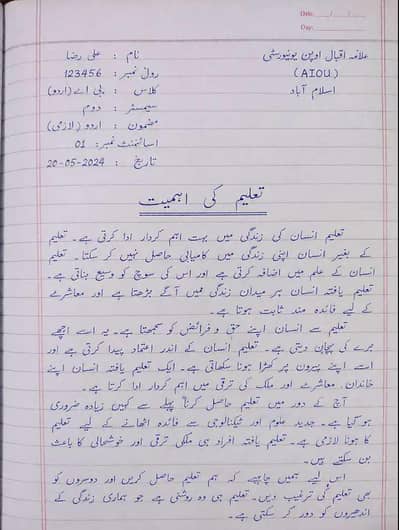 Date:
Day:
علامہ اقبال اوپن یونیورسٹی
(AIOU)
اسلام آباد
نام : علی رضا
رول نمبر : 123456
کلاس : بی اے (اردو)
سیمسٹر : دوم
مضمون : اردو (لازمی)
اسائنمنٹ نمبر : 01
تاریخ : 20-05-2024
تعلیم کی اہمیت
تعلیم انسان کی زندگی میں بہت اہم کردار ادا کرتی ہے۔ تعلیم
کے بغیر انسان اپنی زندگی میں کامیابی حاصل نہیں کر سکتا۔ تعلیم
انسان کے علم میں اضافہ کرتی ہے اور اس کی سوچ کو وسیع بناتی ہے۔
تعلیم یافتہ انسان ہر میدان زندگی میں آگے بڑھتا ہے اور معاشرے
کے لیے فائدہ مند ثابت ہوتا ہے۔
تعلیم سے انسان اپنے حق و فرائض کو سمجھتا ہے۔ یہ اسے اچھے
برے کی پہچان دیتی ہے۔ تعلیم انسان کے اندر اعتماد پیدا کرتی ہے اور
اسے اپنے پیروں پر کھڑا ہونا سکھاتی ہے۔ ایک تعلیم یافتہ انسان اپنے
خاندان، معاشرے اور ملک کی ترقی میں اہم کردار ادا کرتا ہے۔
آج کے دور میں تعلیم حاصل کرنا پہلے سے کہیں زیادہ ضروری
ہو گیا ہے۔ جدید علوم اور ٹیکنالوجی سے فائدہ اٹھانے کے لیے تعلیم
کا ہونا لازمی ہے۔ تعلیم یافتہ افراد ہی ملکی ترقی اور خوشحالی کا باعث
بن سکتے ہیں۔
اس لیے ہمیں چاہیے کہ ہم تعلیم حاصل کریں اور دوسروں کو
بھی تعلیم کی ترغیب دیں۔ تعلیم ہی وہ روشنی ہے جو ہماری زندگی کے
اندھیروں کو دور کر سکتی ہے۔